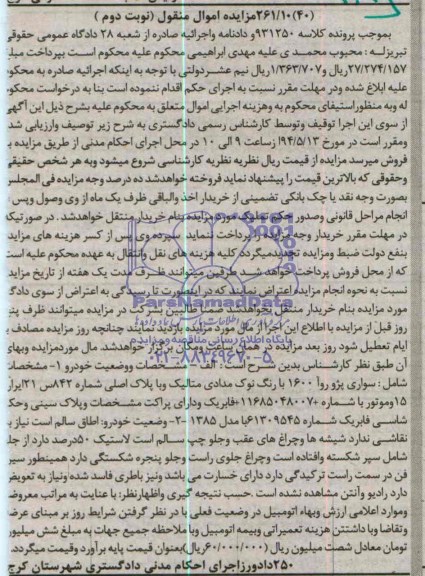 (۴۰) ۲۶۱/۱۰مزایده اموال منقول (نوبت دوم )
بموجب پرونده کلاسه ۹۳۱۲۵۰و دادنامه واجرائیه صادره از شعبه ۲۸ دادگاه عمومی حقوقی
تبریزله : محبوب محمدی علیه مهدی ابراهیمی محکوم علیه محکوم است بپرداخت مبلغ
۲۷/۲۷۴/۱۵۷ریال و ۱/۳۶۳/۷۰۷ریال نیم عشردولتی با توجه به اینکه اجرائیه صادره به محکوم
علیه ابلاغ شده ودر مهلت مقرر نسبت به اجرای حکم اقدام ننموده است بنا به درخواست محکوم
له وبه منظوراستیفای محکوم به وهزینه اجرایی اموال متعلق به محکوم علیه بشرح ذیل این آگهی
از سوی این اجرا توقیف وتوسط کارشناس رسمی دادگستری به شرح زیر توصیف وارزیابی شد
ومقرر است در مورخ ۹۴/۵/۱۳ ازساعت ۹ الی ۱۰ در محل اجرای احکام مدنی از طریق مزایده ب
فروش میرسد مزایده از قیمت ریال نظریه نظریه کارشناسی شروع میشود وبه هر شخص حقیقی
وحقوقی که بالاترین قیمت را پیشنهاد نماید فروخته خواهدشد ده درصد وجه مزایده فی المجلس
بصورت وجه نقد یا چک بانکی تضمینی از خریدار اخذ والباقی ظرف یک ماه از وی وصول وپس از
انجام مراحل قانونی وصدور حکم تملیک مورد مزایده بنام خریدار منتقل خواهدشد . در صورتیکه
در مهلت مقرر خریدار وجه مزایده را پرداخت ننماید سپرده وی پس از کسر هزینه های مزایده
بنفع دولت ضبط ومزایده تجدیدمیگردد کلیه هزینه های نقل وانتقال به عهده محکوم علیه است
که از محل فروش پرداخت خواهد شد طرفین میتوانند ظرف مدت یک هفته از تاریخ مزایده
نسبت به نحوه انجام مزایده اعتراض نمایند که در اینصورت تا رسیدگی به اعتراض از سوی دادگا
مورد مزایده بنام خریدار منتقل نخواهدشد. طالبین بشرکت در مزایده میتوانند ظرف پنج
روز قبل از مزایده با اطلاع این اجرا از مال مورد مزایده بازدید نمایند چنانچه روز مزایده مصادف با
ایام تعطیل شود روز بعد مزایده در همان ساعت ومکان برگزار خواهدشد. مال موردمزایده وبهای
آن طبق نظر کارشناس بدین شرح است : الف مشخصات ووضعیت خودرو ۱- مشخصات
شامل : سواری پژو روآ ۱۶۰۰ با رنگ نوک مدادی متالیک وبا پلاک اصلی شماره ۸۴۲س ۲۱ایران
۱۵وموتور با شماره ۱۱۶۸۵۰۴۸۰۰۷فابریک ودارای پراکت مشخصات وپلاک سینی وحک
شاسی فابریک شماره ۶۱۳۰۹۵۴۵با مدل ۱۳۸۵ -۲- وضعیت خودرو: اطاق سالم است نیاز به
نقاشی ندارد شیشه ها وچراغ های عقب وجلو چپ سالم است لاستیک ۵۰درصد دارد از جلو
شامل سپر شکسته وافتاده است وچراغ جلوی راست وجلو پنجره شکستگی دارد همینطور سپر
فن در سمت راست ترکیدگی دارد دارای خسارت می باشد ونیز باطری فاسد شده ونیاز به تعویض
دارد رادیو وآنتن مشاهده نشده است .حسب نتیجه گیری واظهارنظر: با عنایت به مراتب معروضه
وموارد اعلامی ارزش وبهاء اتومبیل در وضعیت فعلی با در نظر گرفتن شرایط روز بر مبنای عرضه
وتقاضا وبا داشتتن هزینه تعمیراتی وبیمه اتومبیل وبا ملاحظه جمیع جهات به مبلغ شش میلیون
تومان معادل شصت میلیون ریال (۶۰/۰۰۰/۰۰۰ریال)بعنوان قیمت پایه برآورد وقیمت میگردد.
۲۵۰دادورزاجرای احکام مدنی دادگستری شهرستان کرج
ParsNamadData
پایگاه اطلاع رسانی مناقصه و مزایده
۰۲۱-۸۸۳۴۹۶۷۰-۵